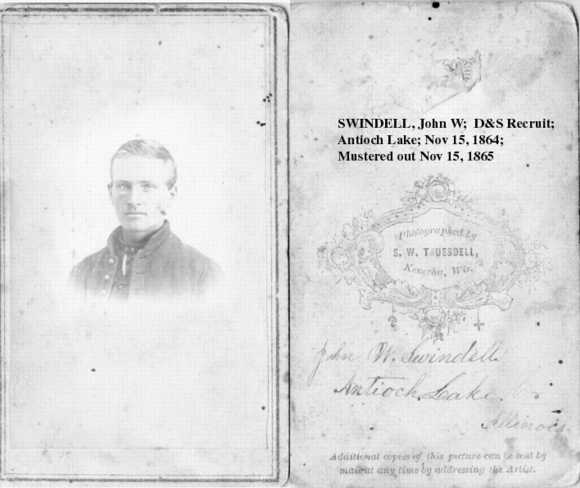 SWINDELL, John W; D&S Recruit;
Antioch Lake; Nov 15, 1864;
Mustered out Nov 15, 1865
Photographed by
S. W. TRUESDELL,
Kenosha, Wis.
John W. Swindell
Antioch Lake
Illinois
Additional copies of this picture can be sent by
mail at any time by addressing the Artist.